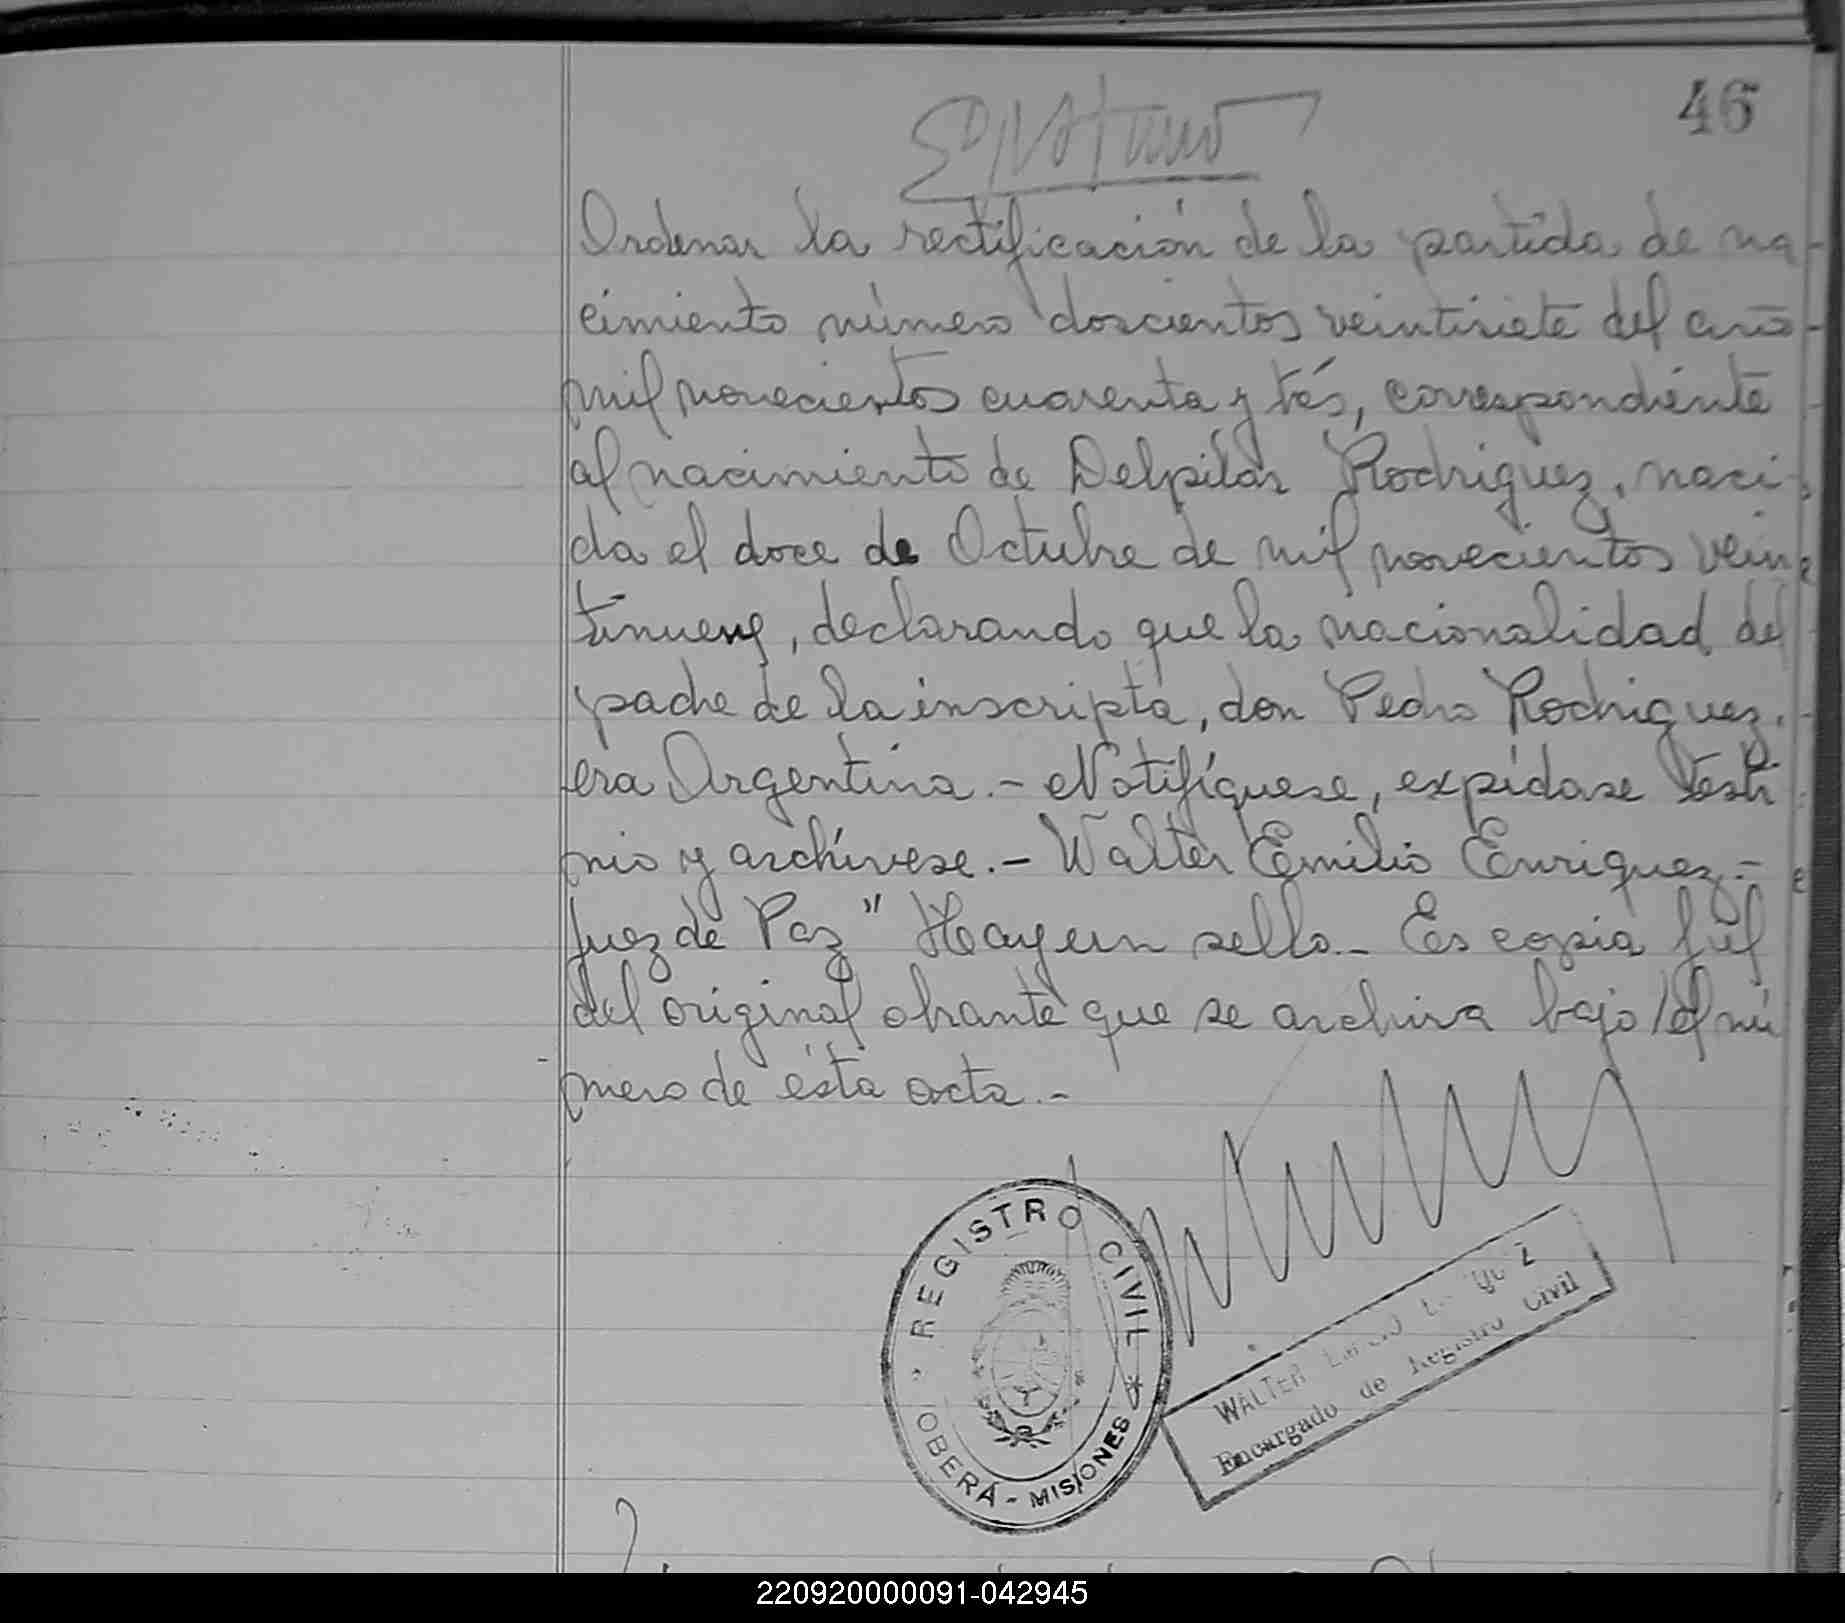 46
Ordenar la rectificación de la partida de na
cimiento número doscientos veintisiete del año
mil novecientos cuarenta y trés, correspondiente
al nacimiento de Delpilar Rodriguez, naci
da el doce de Octubre de mil novecientos vein
tinueve, declarando que la nacionalidad del
padre de la inscripta, don Pedro Rodriguez,
era Argentina.- Notifíquese, expídase testi
nio y archívese.- Walter Emilio Enriquez-
Juez de Paz" Hay un sello.- Es copia fiel
del original obrante que se archiva bajo el nú
mero de ésta acta.-
REGISTRO CIVIL
OBERÁ - MISIONES
WALTER
Encargado de Registro Civil
220920000091-042945